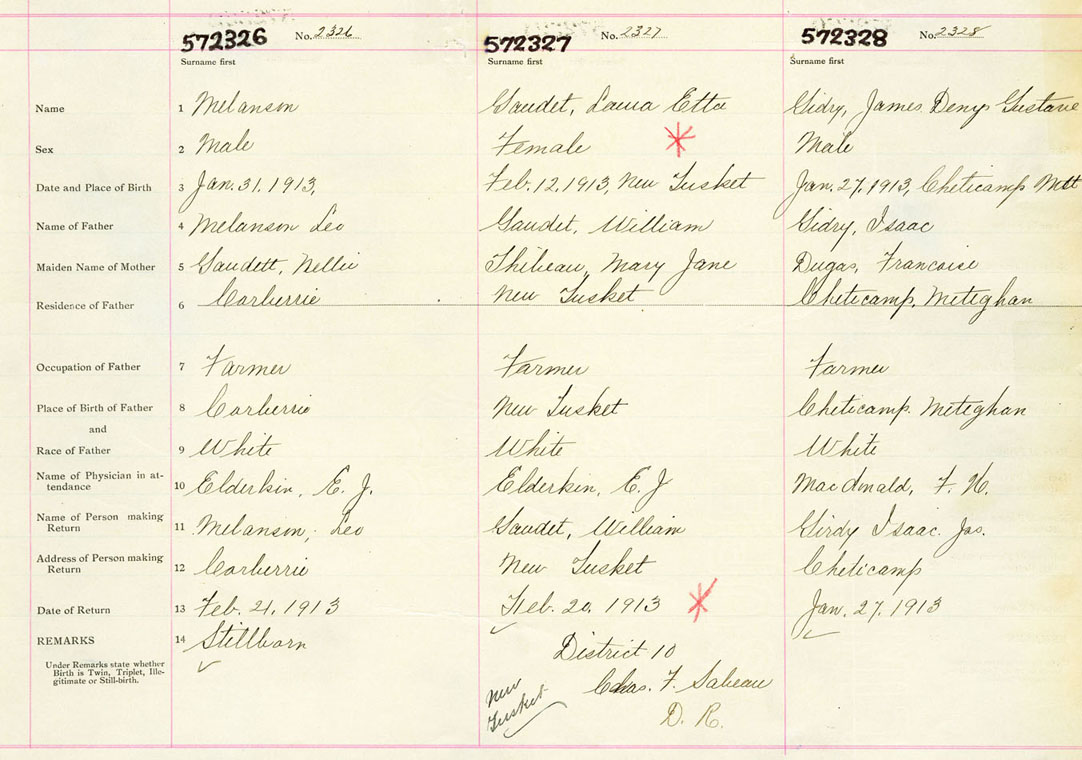 572326 No. 2326 572327 No. 2327 572328 No. 2328
Surname first Surname first Surname first
Name 1 Melanson Gaudet, Laura Etta Gidry, James Denys Gustave
Sex 2 Male Female Male
Date and Place of Birth 3 Jan. 31, 1913, Feb. 12, 1913, New Tusket Jan. 27, 1913, Cheticamp
Name of Father 4 Melanson Leo Gaudet, William Gidry, Isaac
Maiden Name of Mother 5 Gaudett, Nellie Thibeau, Mary Jane Dugas, Francoise
Residence of Father 6 Corberrie New Tusket Cheticamp, Meteghan
Occupation of Father 7 Farmer Farmer Farmer
Place of Birth of Father 8 Corberrie New Tusket Cheticamp. Meteghan
and
Race of Father 9 White White White
Name of Physician in at-
tendance 10 Elderkin, E. J. Elderkin, E. J Macdonald, F. H.
Name of Person making
Return 11 Melanson, Leo Gaudet, William Girdy Isaac. Jas.
Address of Person making
Return 12 Corberrie New Tusket Cheticamp
Date of Return 13 Feb. 21, 1913 Feb. 20, 1913 Jan. 27, 1913
REMARKS 14 Stillborn District 10
Under Remarks state whether
Birth is Twin, Triplet, Ille-
gitimate or Still-birth.
New
Tusket
Chas. F. Sabeau
D. R.